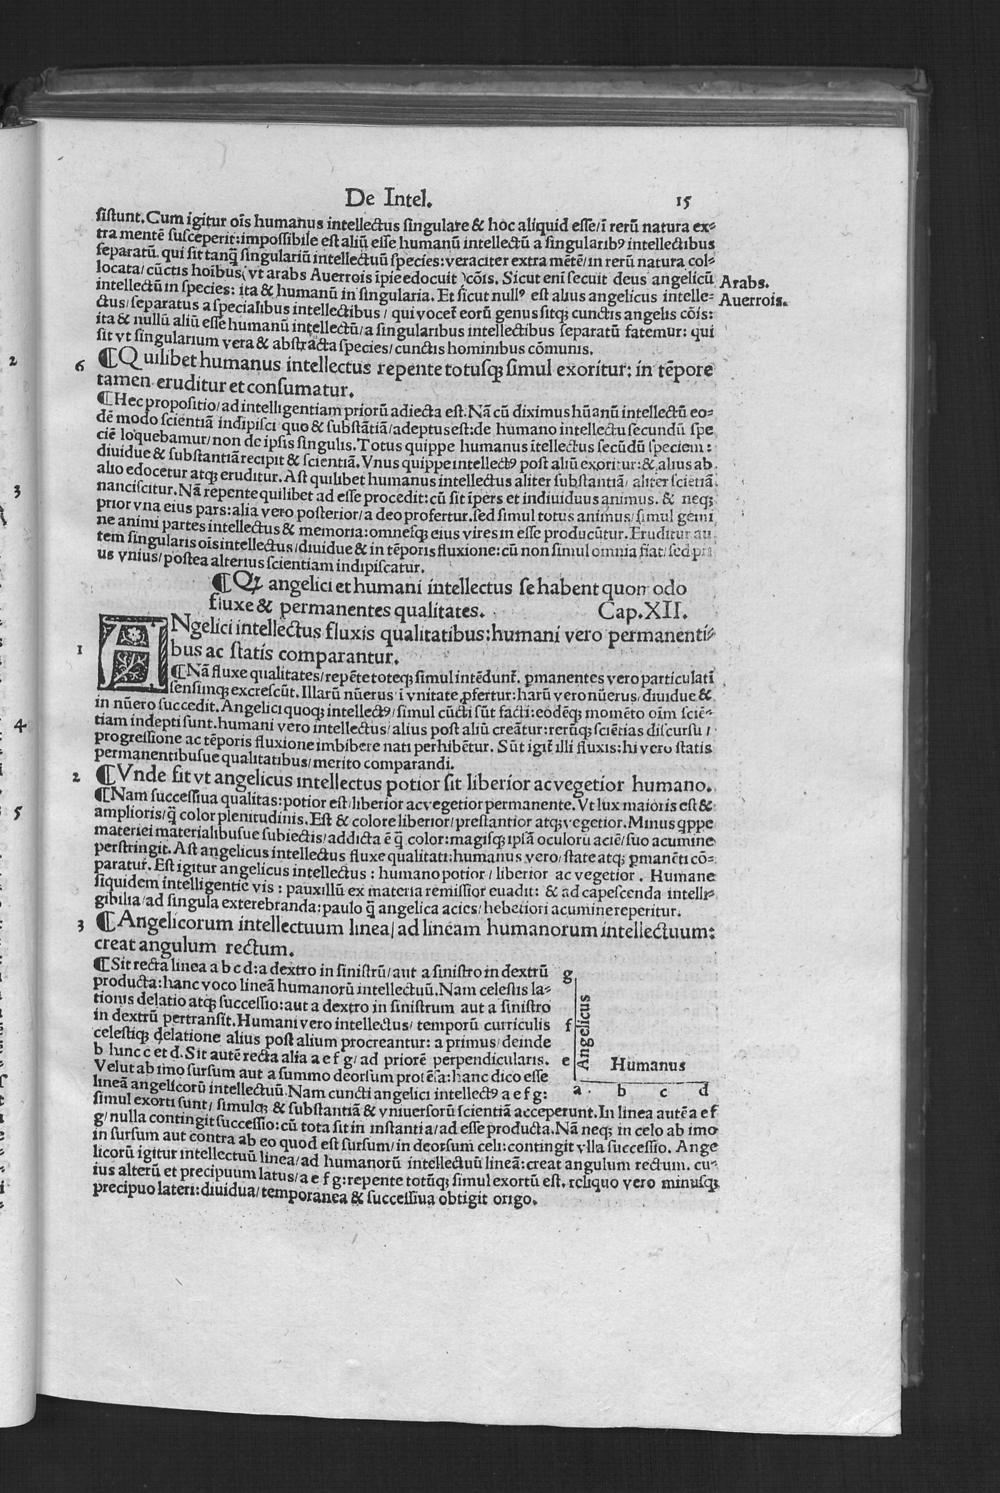 De Intel. 15
sistunt. Cum igitur oīs humanus intellectus singulare & hoc aliquid esse/ī rerū natura ex⸗
tra mentē susceperit: impossibile est aliū esse humanū intellectū a singularibꝰ intellectibus
separatū. qui sit tanq̄ singulariū intellectuū species: veraciter extra mētē/in rerū natura col⸗
locata/cūctis hoībus, vt arabs Auerrois īpie edocuit cōis. Sicut enī secuit deus angelicū
Arabs.
intellectū in species: ita & humanū in singularia. Et sicut nullꝰ est alius angelicus intelle⸗
Auerrois.
ctus/separatus a specialibus intellectibus/ qui vocet̄ eorū genus sitqꝫ cunctis angelis cōis:
ita & nullū aliū esse humanū intellectū/a singularibus intellectibus separatū fatemur: qui
sit vt singularium vera & abstracta species/cunctis hominibus cōmunis.
6 ¶Quilibet humanus intellectus repente totusqꝫ simul exoritur: in tēpore
tamen eruditur et consumatur.
¶Hec propositio/ad intelligentiam priorū adiecta est. Nā cū diximus hūanū intellectū eo⸗
dē modo scientiā indipisci quo & substātiā/adeptus est: de humano intellectu secundū spe
ciē loquebamur/non de ipsis singulis. Totus quippe humanus ītellectus secūdū speciem:
diuidue & substantiā recipit & scientiā. Vnus quippe intellectꝰ post aliū exoritur: & alius ab
alio edocetur atqꝫ eruditur. Ast quilibet humanus intellectus aliter substantiā/ aliter sciētiā
nanciscitur. Nā repente quilibet ad esse procedit: cū sit īpers et indiuiduus animus. & neqꝫ
prior vna eius pars: alia vero posterior/a deo profertur. sed simul totus animus/simul gemi
ne animi partes intellectus & memoria: omnesqꝫ eius vires in esse producūtur. Eruditur au
tem singularis oīs intellectus/diuidue & in tēporis fluxione: cū non simul omnia fiāt/sed pri
us vnius/postea alterius scientiam indipiscatur.
¶Qꝫ angelici et humani intellectus se habent quomodo
fluxe & permanentes qualitates. Cap.XII.
1 ANgelici intellectus fluxis qualitatibus: humani vero permanenti⸗
bus ac statis comparantur.
¶Nā fluxe qualitates/repēte toteqꝫ simul intēdunt̄. ꝑmanentes vero particulati
sensimqꝫ excrescūt. Illarū nūerus ī vnitate ꝓfertur: harū vero nūerus/diuidue &
in nūero succedit. Angelici quoqꝫ intellectꝰ/simul cūcti sūt facti: eodēqꝫ momēto oīm sciē⸗
tiam indepti sunt. humani vero intellectus/alius post aliū creātur: rerūqꝫ sciētias discursu
progressione ac tēporis fluxione imbibere nati perhibētur. Sūt igit̄ illi fluxis: hi vero statis
permanentibusue qualitatibus/merito comparandi.
2 ¶Vnde fit vt angelicus intellectus potior sit liberior ac vegetior humano.
¶Nam successiua qualitas: potior est/liberior ac vegetior permanente. Vt lux maioris est &
amplioris/q̄ color plenitudinis. Est & colore liberior/prestantior atqꝫ vegetior. Minus qppe
materiei materialibusue subiectis/addicta ē q̄ color: magisqꝫ ipsā oculorū aciē/suo acumine
perstringit. Ast angelicus intellectus fluxe qualitati: humanus vero/state atqꝫ ꝑmanēti cō⸗
paratur̄. Est igitur angelicus intellectus: humano potior/ liberior ac vegetior. Humane
siquidem intelligentie vis: pauxillū ex materia remissior euadit: & ad capescenda intelli⸗
gibilia/ad singula exterebranda: paulo q̄ angelica acies/hebetiori acumine reperitur.
3 ¶Angelicorum intellectuum linea/ad lineam humanorum intellectuum:
creat angulum rectum.
¶Sit recta linea a b c d: a dextro in sinistrū/aut a sinistro in dextrū
producta: hanc voco lineā humanorū intellectuū. Nam celestis la⸗
tionis delatio atqꝫ successio: aut a dextro in sinistrum aut a sinistro
in dextrū pertransit. Humani vero intellectus/ temporū curriculis
celestiqꝫ delatione alius post alium procreantur: a primus/deinde
b hinc c et d. Sit autē recta alia a e f g/ad priorē perpendicularis.
Velut ab imo sursum aut a summo deorsum protēsa: hanc dico esse
lineā angelicorū intellectuū. Nam cuncti angelici intellectꝰ a e f g:
simul exorti sunt/ simulqꝫ & substantiā & vniuersorū scientiā acceperunt. In linea autē a e f
g/nulla contingit successio: cū tota sit in instantia/ad esse producta. Nā neqꝫ in celo ab imo
in sursum aut contra ab eo quod est sursum/in deorsum celi: contingit vlla successio. Ange
licorū igitur intellectuū linea/ad humanorū intellectuū lineā: creat angulum rectum. cu⸗
ius alterū et precipuum latus/a e f g: repente totūqꝫ simul exortū est. reliquo vero minusqꝫ
precipuo lateri: diuidua/temporanea & successiua obtigit origo.
g
f
e
Angelicus
Humanus
a b c d
2
3
4
5